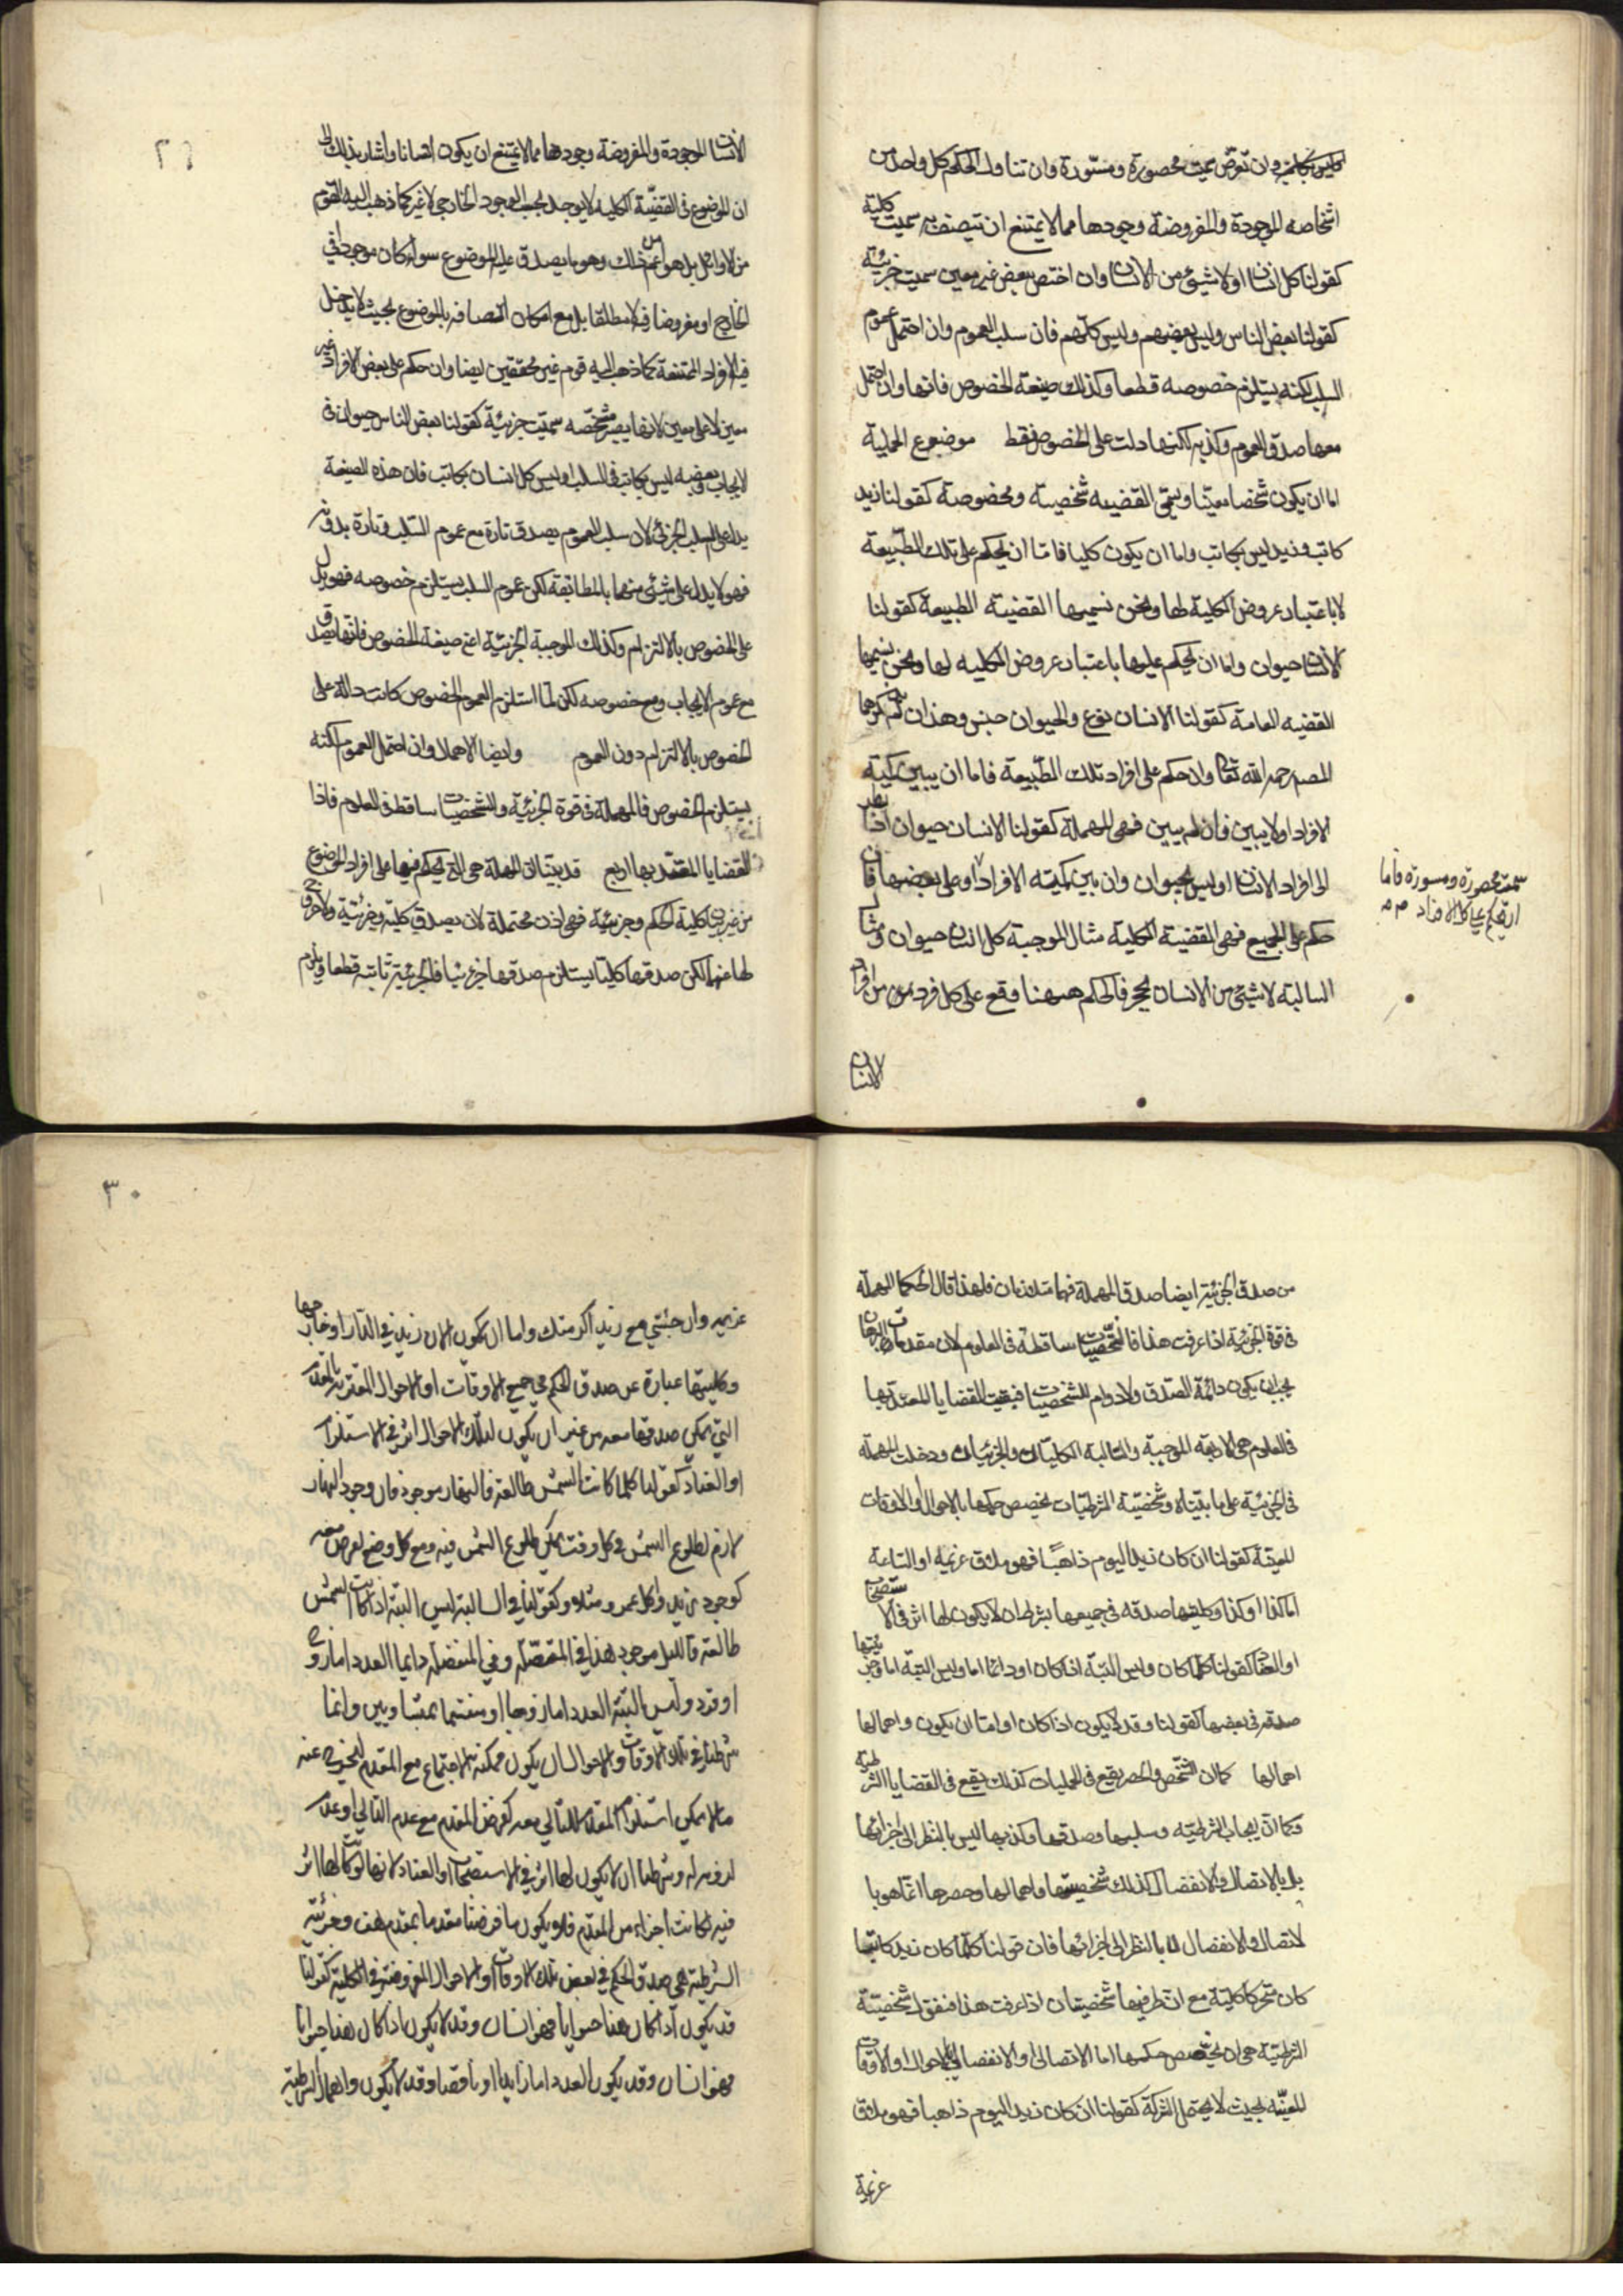 او ليس بكاتب وان تعرض سميت محصورة ومسورة وان تناول الحكم كل واحد من
اشخاصه الموجودة والمفروضة وجودها مما لا يمتنع ان تتصف به سميت كلية
كقولنا كل انسان او لا شيئ من الانسان وان اختص ببعض غير معين سميت جزئية
كقولنا بعض الناس وليس بعضهم وليس كلهم فان سلب العموم وان احتمل عموم
السلب لكنه يستلزم خصوصه قطعا وكذلك صيغة الخصوص فانها وان احتمل
معها صدق العموم وكذبه لكنها دلت على الخصوص فقط موضوع الحملية
اما ان يكون شخصا معينا ويسمى القضيه شخصية ومخصوصة كقولنا زيد
كاتب وزيد ليس بكاتب واما ان يكون كليا فاما ان يحكم على تلك الطبيعة
لا باعتبار عروض الكلية لها ونحن نسميها القضية الطبيعة كقولنا
الانسان حيوان واما ان يحكم عليها باعتبار عروض الكليه لها ونحن نسميها
القضيه العامة كقولنا الانسان نوع والحيوان جنس وهذان لم يذكرهما
المصنف رحمه الله تعالى وان حكم على افراد تلك الطبيعة فاما ان يبين كمية
الافراد او لا يبين فان لم يبين فهى المهملة كقولنا الانسان حيوان
الى افراد الانسان او ليس بحيوان وان بين كمية الافراد او على بعضها فان
حكم على الجميع فهى القضية الكلية مثال الموجبة كل انسان حيوان ومثال
السالبة لا شيئ من الانسان بحجر فالحكم ههنا وقع على كل فرد من افراد
سميت محصورة ومسورة فاما
ان يحكم على كل الافراد
الانسان
الانسان الموجودة والمفروضة وجودها مما لا يمتنع ان يكون انسانا واشار بذلك الى
ان الموضوع فى القضية الكلية لا يوجد بحسب الوجود الخارجى لا غير كما ذهب اليه القوم
من الاوائل بل هو اعم من ذلك وهو ما يصدق عليه الموضوع سواء كان موجودا فى
الخارج او مفروضا فيه لا مطلقا بل مع امكان اتصافه بالموضوع بحيث لا يدخل
فيه الافراد الممتنعة كما ذهب اليه قوم غير محققين ايضا وان حكم على بعض الافراد غير
معين لا على معين لانها يصير شخصه سميت جزئية كقولنا بعض الناس حيوان فى
الايجاب وبعضه ليس بكاتب فى السلب او ليس كل انسان بكاتب فان هذه الصيغة
يدل على السلب الجزئى لان سلب العموم يصدق تارة مع عموم السلب وتارة بدونه
فهو لا يدل على شيئ منهما بالمطابقة لكن عموم السلب يستلزم خصوصه فهو يدل
على الخصوص بالالتزام وكذلك الموجبة الجزئية اعنى صيغة الخصوص فانها يصدق
مع عموم الايجاب ومع خصوصه لكن لما استلزم العموم الخصوص كانت دالة على
الخصوص بالالتزام دون العموم وايضا الاهمال وان احتمل العموم لكنه
يستلزم الخصوص فالمهملة فى قوة الجزئية والشخصيات ساقطة فى العلوم فاذا
القضايا المعتد بها اربع قد بينا ان المهملة هى التى يحكم فيها على افراد الموضوع
من غير بيان كلية الحكم وجزئيته فهى اذن محتملة لان يصدق كلية وجزئية ولا خروج
لها عنهما لكن صدقها كليا يستلزم صدقها جزئيا فالجزئية ثابتة قطعا ويلزم
من صدق الجزئية ايضا صدق المهملة فهما متلازمان فلهذا قال الحكما المهملة
فى قوة الجزئية اذا عرفت هذا فالشخصيات ساقطة فى العلوم لان مقدمات البرهان
يجب ان يكون دائمة الصدق ولا دوام للشخصيات فبقيت القضايا المعتد بها
فى العلوم هى الاربعة الموجبة والسالبة الكليتان والجزئيتان ودخلت المهملة
فى الجزئية على ما بيناه وشخصية الشرطيات بتخصص حكمها بالاحوال والاوقات
المعينة كقولنا ان كان زيد اليوم ذاهبا فهو ملاق غريمه او الساعة
اما كذا او كذا وكليتها صدقه فى جميعها بشرط ان لا يكون لها اثر فى الاستصحاب
او العناد كقولنا كلما كان وليس البتة اذا كان او دائما اما وليس البتة اما وجزئيتها
صدقه فى بعضها كقولنا وقد لا يكون اذا كان او اما ان يكون واهمالها
اهمالها كما ان الشخص والحصر يقع فى الحمليات كذلك يقع فى القضايا الشرطية
وكما ان ايجاب الشرطية وسلبها وصدقها وكذبها ليس بالنظر الى اجزائها
بل بالاتصال والانفصال كذلك شخصيتها واهمالها وحصرها انما هو با
لاتصال والانفصال لا بالنظر الى اجزائها فان قولنا كلما كان زيد كاتبا
كان متحركا كلية مع ان طرفيها شخصيتان اذا عرفت هذا فنقول شخصية
الشرطية هى ان يتخصص حكمها اما الاتصالى او الانفصالى بالاحوال والاوقات
المعينة بحيث لا يحتمل الشركة كقولنا ان كان زيد اليوم ذاهبا فهو ملاق
غريمة
٣٠
غريمه وان جئتني مع زيد اكرمتك واما ان يكون الان زيد في الدار او خارجها
وكليتها عبارة عن صدق الحكم في جميع الاوقات او الاحوال المقتربة بالمقدم
التي يمكن صدقها معه من غير ان يكون لتلك الاحوال اثر في الاستلزام
او العناد كقولنا كلما كانت الشمس طالعة فالنهار موجود فان وجود النهار
لازم لطلوع الشمس في كل وقت يمكن طلوع الشمس فيه ومع كل وضع يفرض معه
كوجود زيد واكل عمرو ومثله وكقولنا في السالبة ليس البتة اذا كانت الشمس
طالعة فالليل موجود هذا في المتصلة وفي المنفصلة دايما العدد اما زوج
او فرد وليس البتة العدد اما زوجا او منقسما بمتساويين وانما
شرطنا في تلك الاوقات والاحوال ان يكون ممكنة الاجتماع مع المقدم ليخرج عنه
ما لا يمكن استلزام المقدم للتالي معه كفرض المقدم مع عدم التالي او عدم
لزومه له وشرطنا ان لا يكون لها اثر في الاستصحاب او العناد لانها لو كان لها اثر
فيه لكانت اجزاء من المقدم فلا يكون ما فرضنا مقدما بمقدم هف وجزئية
الشرطية هي صدق الحكم في بعض تلك الاوقات او الاحوال المفروضة في الكلية كقولنا
قد يكون اذا كان هذا حيوانا فهو انسان وقد لا يكون اذا كان هذا حيوانا
فهو انسان وقد يكون العدد اما زايدا او ناقصا وقد لا يكون واهمال الشرطية